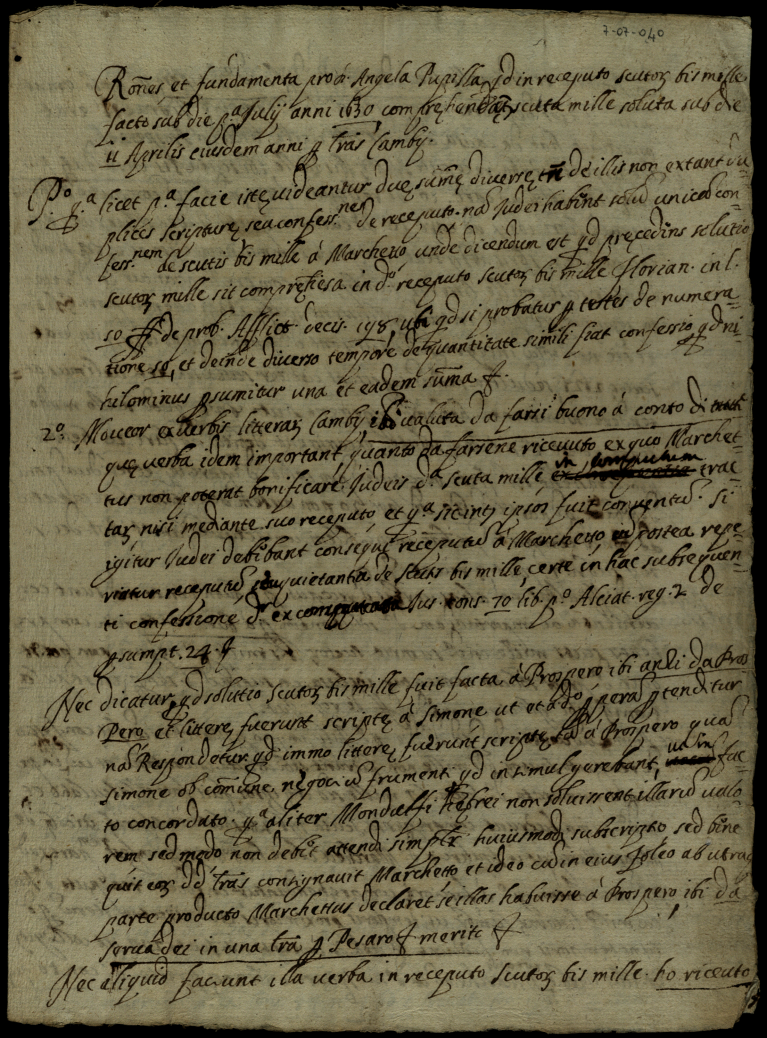 7-07-040
Rões et fundamenta pro á Angela Pupilla qd in receputo scutoꝝ bis mille
facto sub die pª Julij anni 1630 comprehendãt scuta mille soluta sub die
ii Aprilis eiusdem anni p trãs Camby.
Pº qª licet pª facie iste videantur due sume diverse tñ de illis non extant du
plices scripture seu confess.nes de receputo. nã Judei habint solũ unicã con=
fess.nem de scuttis bis mille á Marchetto unde dicendum est qd precedens solutio
scutoꝝ mille sit compresa in dº receputo scutoꝝ bis mille Florian. in l.
10 ff de prob. Afflict decis. 198 ubi qd si probatur p testes de numera=
tione 10, et deinde diverso tempore de quantitate simili fiat confessio, qd ni=
hilominus psumitur una et eadem suma &.
2º. Moveor ex verbis litteraꝝ Camby ibi valuta da farsi buono á conto di
que verba idem important, quanto da farsene ricevuto ex quo Marchet=
tus non poterat bonificare Judeis dª scuta mille in computum trac=
taꝝ nisi mediante suo receputo et qª sic intꝝ ipsos fuit conventũ. Si
igitur Judei debebant consequi receputũ á Marchetto et postea repe=
ritur receputũ, seu quietantia de scutis bis mille, certe in hac subsequen=
ti confessione dr Jus. cons. 70 lib. pº Alciat. reg. 2 de
psumpt. 24. &
Nec dicatur, qd solutio scutoꝝ bis mille fuit facta á Prospero ibi anzi da Pros
Pero et litere fuerunt scripte á Simone ut et adº p perã ptenditur
nã Respondetur qd immo littere fuerunt scripte tã á Prospero quã
Simone ob comũne negociũ frumenti qd insimul gerebant, fac=
to concordato. qª aliter Mondolfi Hebrei non solvissent illarũ valo=
rem sed modo non debet attendi simplr huiusmodi subscripto sed bene
quis eoꝝ dd trãs consignavit Marchetto et ideo cũ in eius foleo ab utraq
parte producto Marchettus declaret se illas habuisse á Prospero ibi da
servà dei in una trã p Pesaro & merito &
Nec aliquid faciunt illa verba in receputo scutoꝝ bis mille. ho riceuto